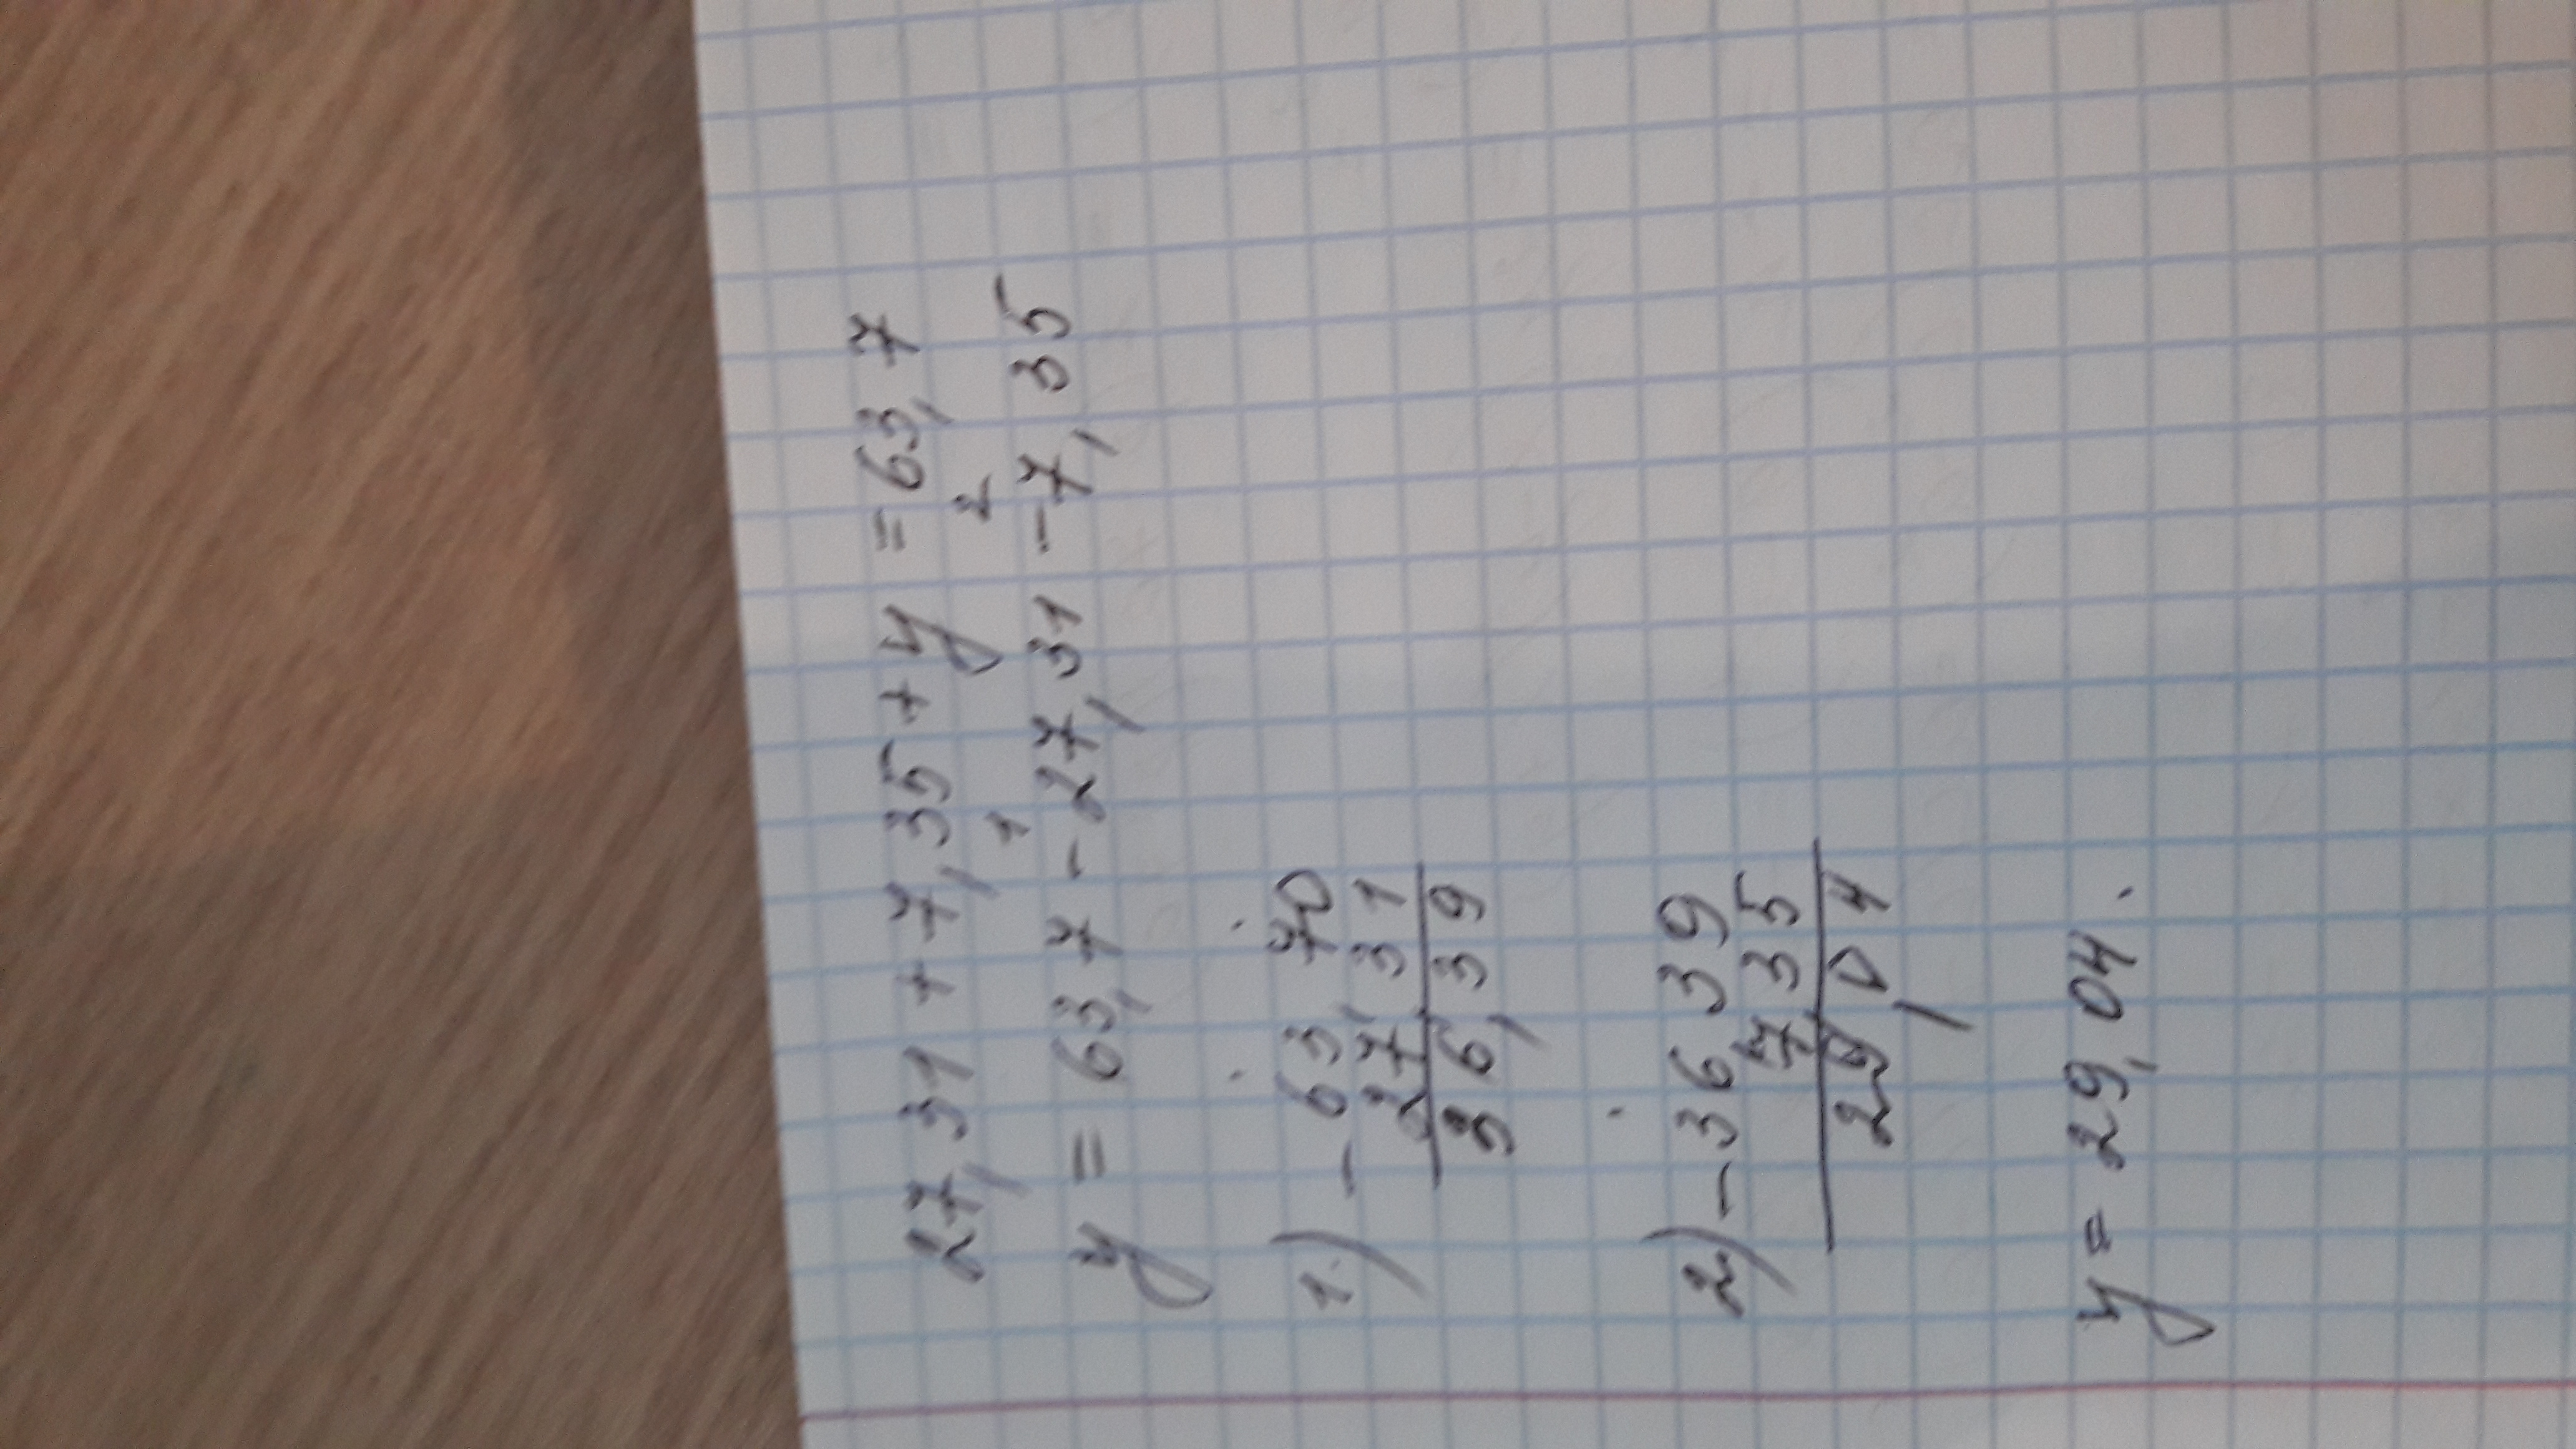 27,31 + 7,35 + y = 63,7
1 2
y = 63,7 - 27,31 - 7,35
1) - 63,70
27,31
36,39
2) - 36 39
7,35
29,04
y = 29,04.